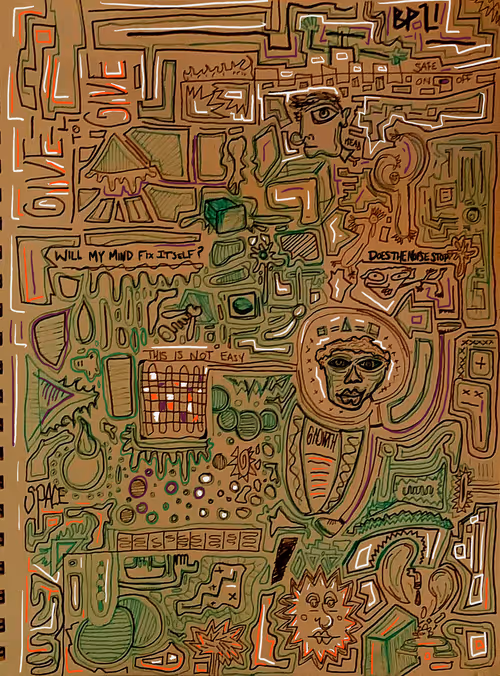 BP.2!
SAFE
ON OFF
GIVE
GIVE
WILL MY MIND FIX ITSELF?
DOES THE NOISE STOP
THIS IS NOT EASY
GROWTH
SPACE